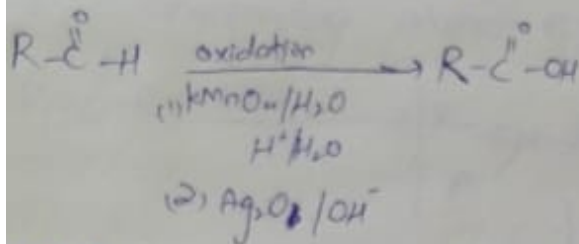 R-C-H oxidation → R-C-OH
O O
(1) KMnO4/H2O
H+/H2O
(2) Ag2O/OH-